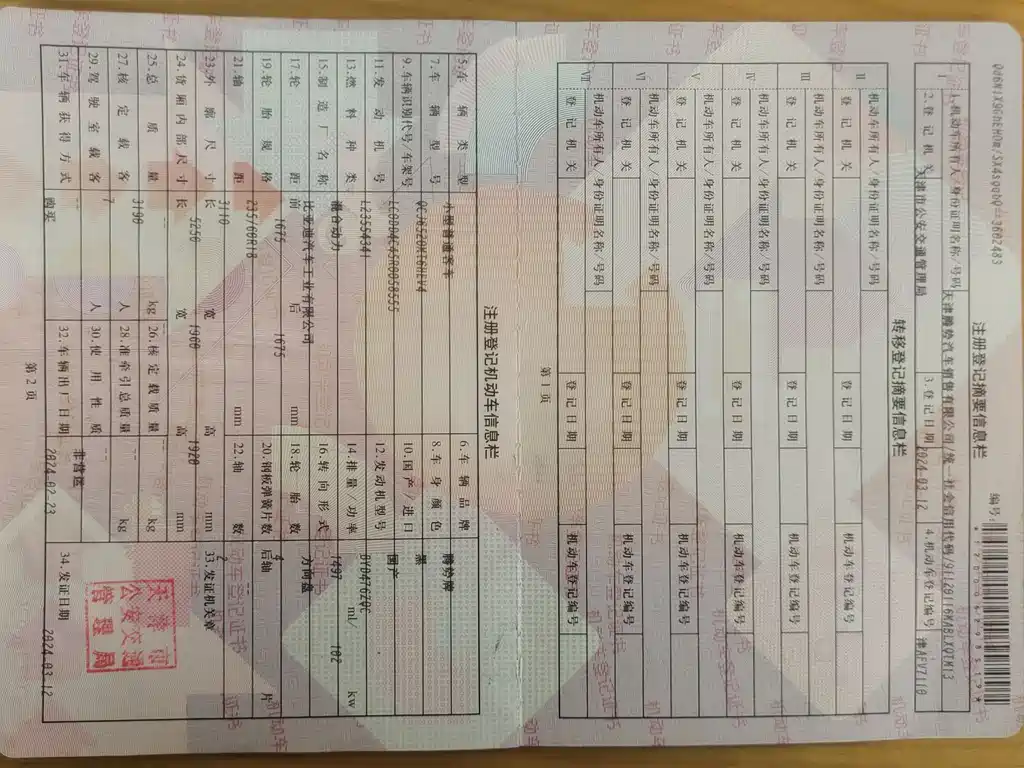 注册登记摘要信息栏
编号:
Ⅰ
1.机动车所有人/身份证明名称/号码
天津腾势汽车销售有限公司/统一社会信用代码/91120116MABLXQYM13
2.登记机关
天津市公安交通管理局
3.登记日期
2024-03-12
4.机动车登记编号
津AFV7110
转移登记摘要信息栏
Ⅱ
机动车所有人/身份证明名称/号码
登记机关
登记日期
机动车登记编号
Ⅲ
机动车所有人/身份证明名称/号码
登记机关
登记日期
机动车登记编号
Ⅳ
机动车所有人/身份证明名称/号码
登记机关
登记日期
机动车登记编号
Ⅴ
机动车所有人/身份证明名称/号码
登记机关
登记日期
机动车登记编号
Ⅵ
机动车所有人/身份证明名称/号码
登记机关
登记日期
机动车登记编号
Ⅶ
机动车所有人/身份证明名称/号码
登记机关
登记日期
机动车登记编号
第1页
注册登记机动车信息栏
5.车辆类型 小型普通客车 6.车辆品牌 腾势牌
7.车辆型号 QCJ6520MT6HEV4 8.车身颜色 黑
9.车辆识别代号/车架号 LC0DD4C45R0058555 10.国产/进口 国产
11.发动机号 12.发动机型号 BYD476ZQC
13.燃料种类 混合动力 14.排量/功率 1497 ml/ 102 kw
15.制造厂名称 比亚迪汽车工业有限公司 16.转向形式 方向盘
17.轮距 前 1675 后 1675 mm 18.轮胎数 4
19.轮胎规格 235/60R18 20.钢板弹簧片数 后轴 -- 片
21.轴距 3110 mm 22.轴数 2
23.外廓尺寸 长 5250 宽 1960 高 1920 mm
33.发证机关章
天津市公安交通管理局
24.货厢内部尺寸 长 宽 高 mm
25.总质量 3190 kg 26.核定载质量 -- kg
27.核定载客 7 人 28.准牵引总质量 -- kg
29.驾驶室载客 -- 人 30.使用性质 非营运
31.车辆获得方式 购买 32.车辆出厂日期 2024-02-23
34.发证日期 2024-03-12
第2页